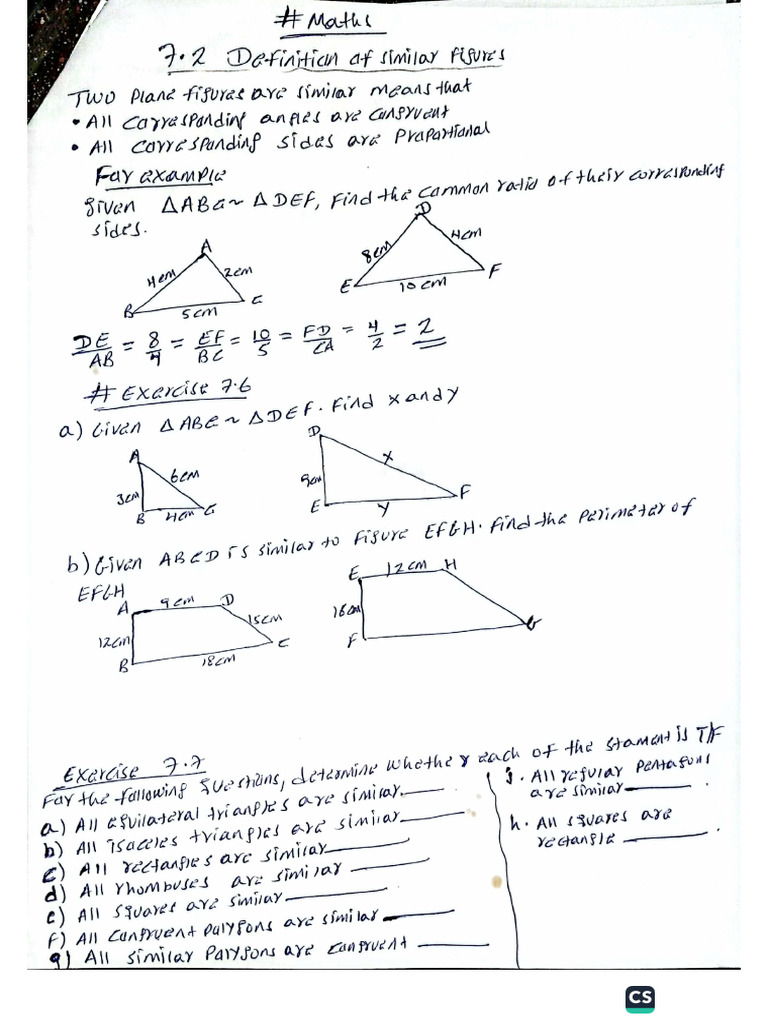 # Maths
7.2 Definition of similar figures
Two plane figures are similar means that
• All corresponding angles are congruent
• All corresponding sides are proportional
For example
given △ABC ~ △DEF, find the common ratio of their corresponding
sides.
A
4cm
2cm
B
5cm
C
D
8cm
4cm
E
10cm
F
DE/AB = 8/4 = EF/BC = 10/5 = FD/CA = 4/2 = 2
# Exercise 7.6
a) Given △ABC ~ △DEF. Find x and y
A
6cm
3cm
B
4cm
C
D
x
9cm
E
y
F
b) Given ABCD is similar to figure EFGH. Find the perimeter of
EFGH
A
9cm
D
12cm
15cm
B
18cm
C
E
12cm
H
16cm
F
G
Exercise 7.7
For the following questions, determine whether each of the stament is T/F
a) All equilateral triangles are similar.
b) All isoceles triangles are similar
c) All rectangles are similar
d) All rhombuses are similar
e) All squares are similar
f) All congruent polygons are similar
g) All similar polygons are congruent
g. All regular pentagons
are similar
h. All squares are
rectangle
CS